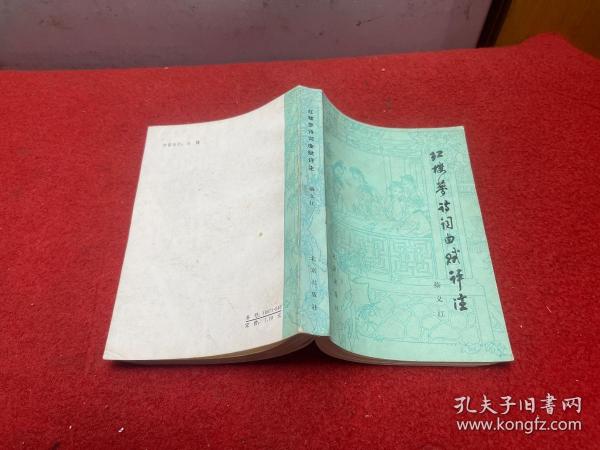 红楼梦诗词曲赋评注
蔡义江
红楼梦诗词曲赋评注
蔡义江
北京出版社
孔夫子旧书网
www.kongfz.com